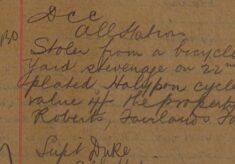 DCC
All Stations
Stolen from a bicycle
Yard Stevenage on 22nd
plated Halypon cycle
value 4/- the property
Roberts, Fairlands
Supt Duke